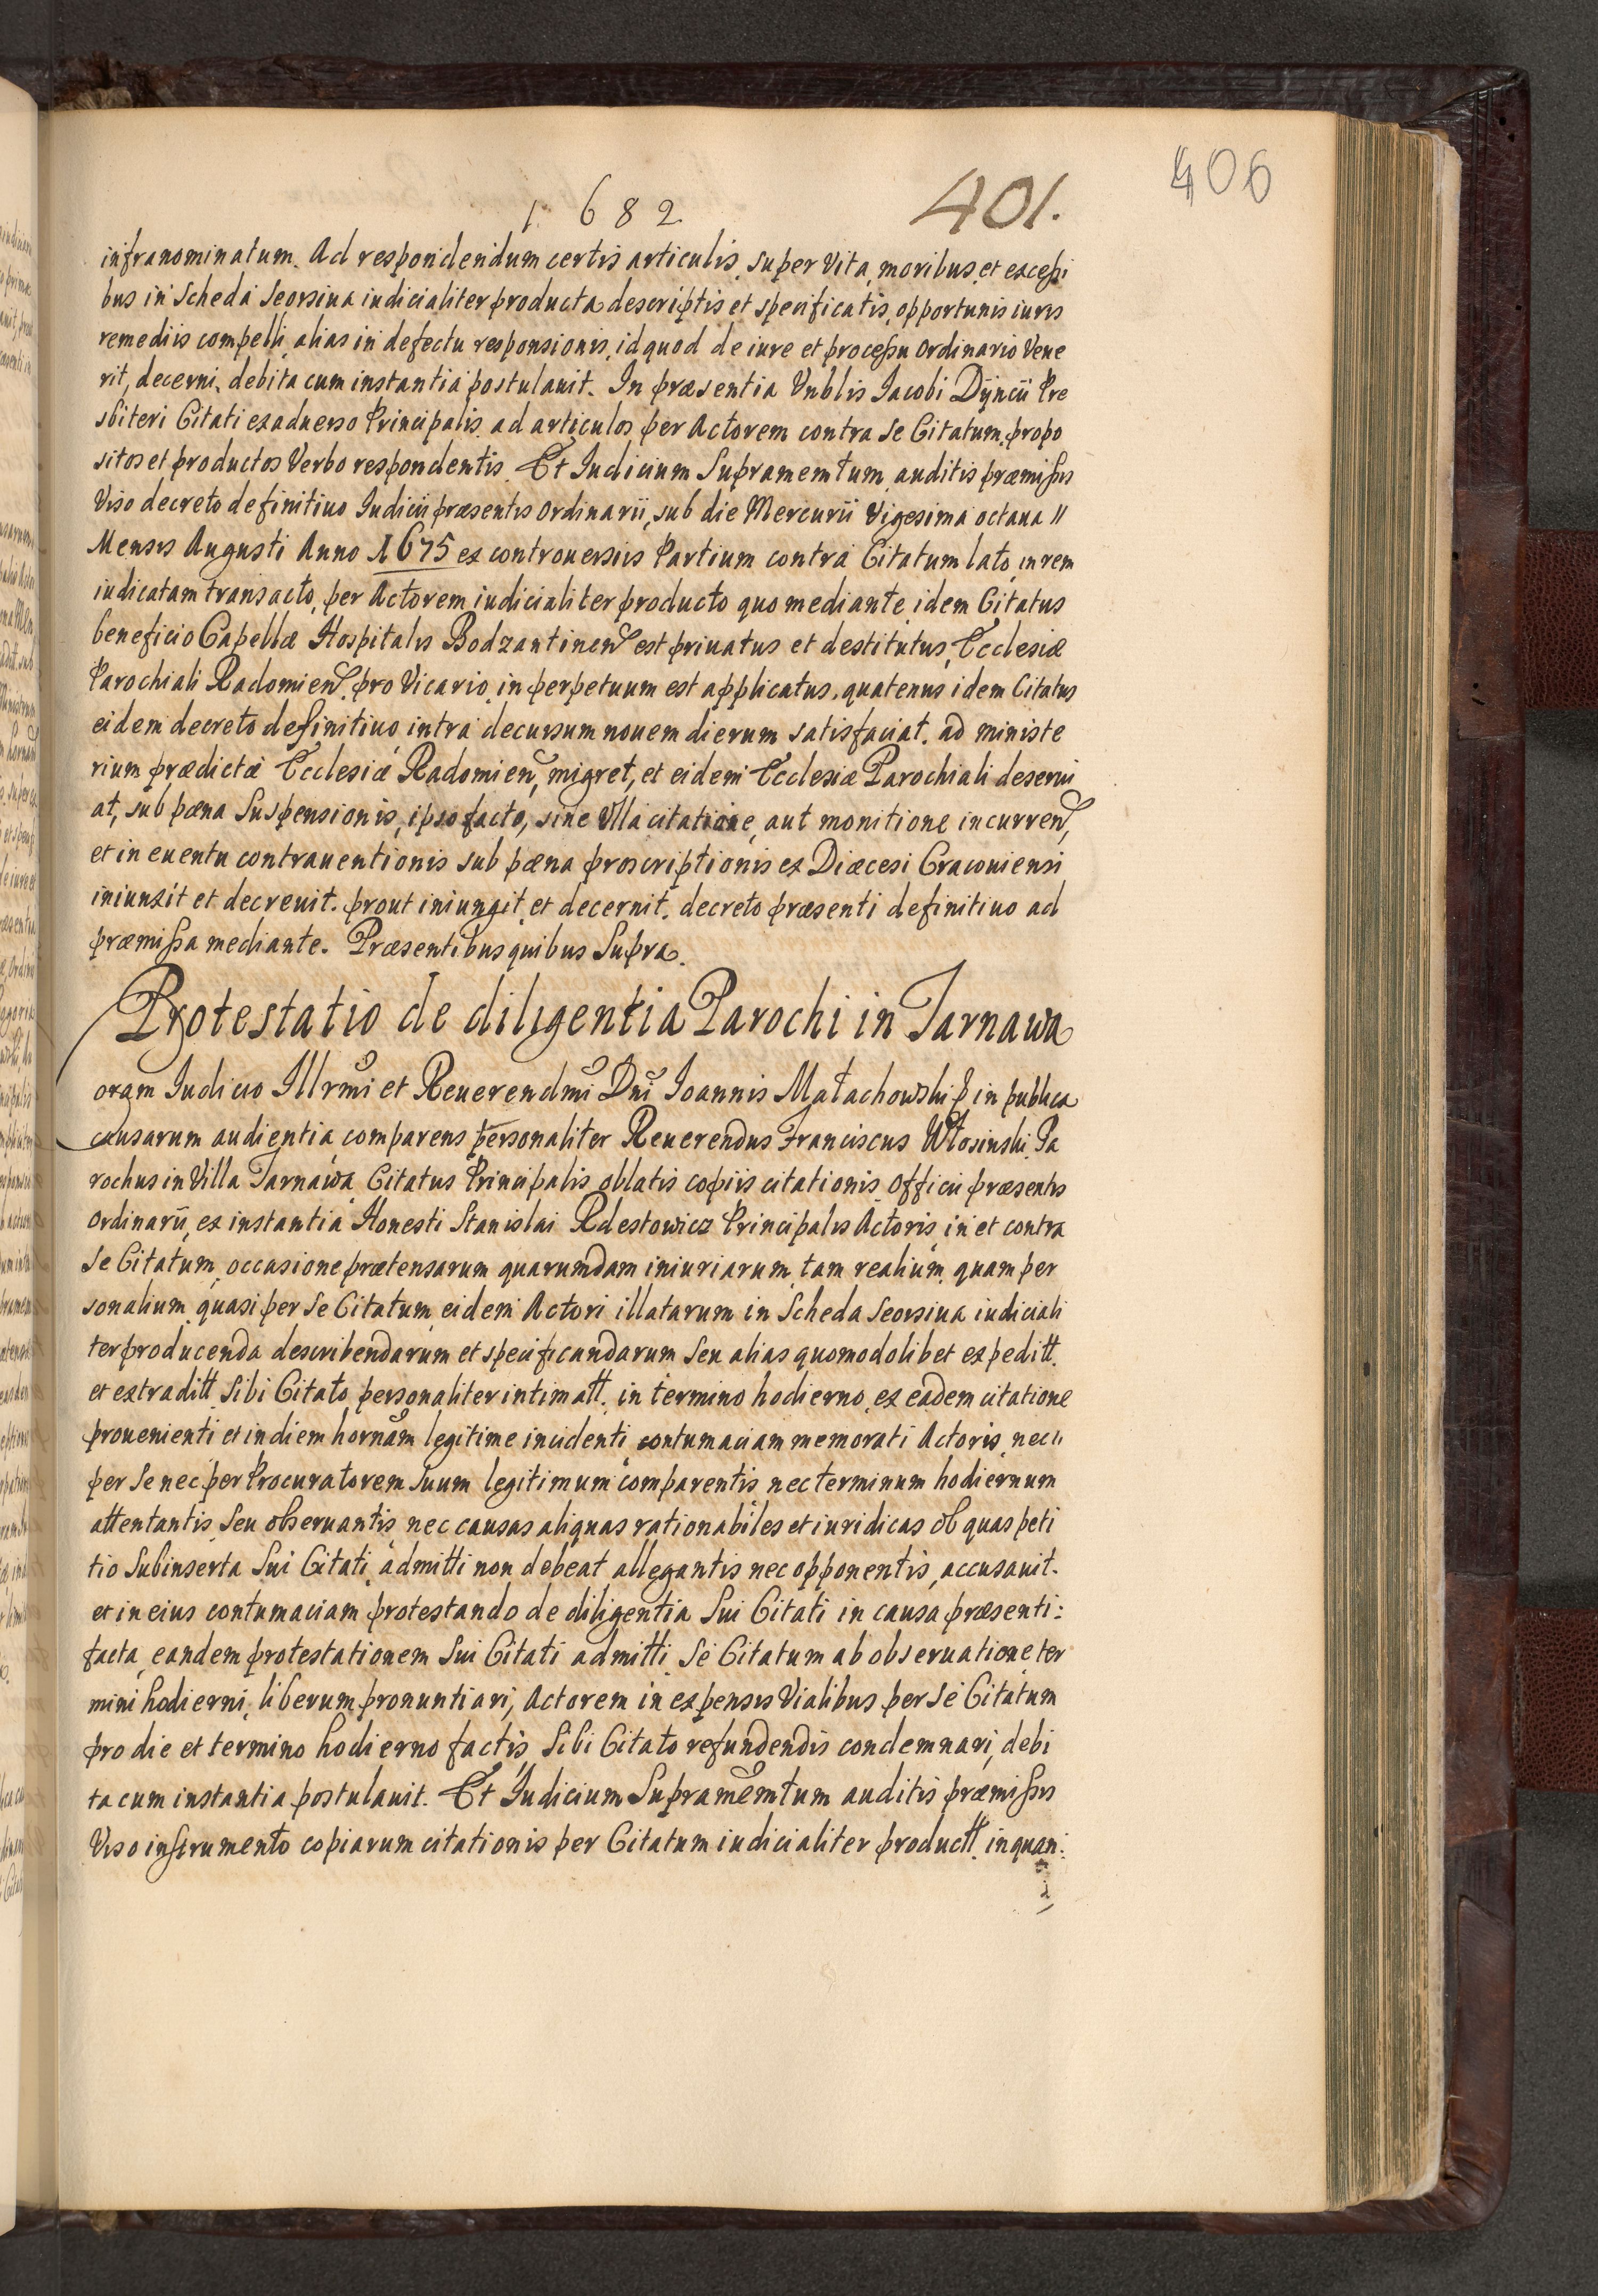 406
1682
401.
infranominatum. Ad respondendum certis articulis, super Vita, moribus, et excessi
bus in Scheda Seorsiua iudicialiter producta descriptis et specificatis, opportunis iuris
remediis compelli, alias in defectu responsionis, id quod de iure et processu Ordinario Vene
rit, decerni, debita cum instantia postulauit. In præsentia Vnblis Iacobi Dÿncii Pre
sbiteri Citati ex aduerso Principalis, ad articulos per Actorem contra Se Citatum, propo
sitos et productos Verbo respondentis. Et Iudicium Supramemtum, auditis præmissis
Viso decreto definitiuo Iudicii præsentis Ordinarii, sub die Mercurii Vigesima octaua //
Mensis Augusti Anno 1675 ex controuersiis Partium contra Citatum lato, in rem
iudicatam transacto, per Actorem iudicialiter producto quo mediante, idem Citatus
beneficio Capellæ Hospitalis Bodzantinen est priuatus et destitutus, Ecclesiæ
Parochiali Radomien. pro Vicario, in perpetuum est applicatus, quatenus idem Citatus
eidem decreto definitiuo, intra decursum nouem dierum, satisfaciat. ad ministe
rium prædictæ Ecclesiæ Radomien, migret, et eidem Ecclesiæ Parochiali deserui
at, sub pæna Suspensionis, ipso facto, sine Vlla citatione, aut monitione incurren,
et in euentu contrauentionis sub pæna proscriptionis ex Diæcesi Cracouiensi
iniunxit et decreuit. prout iniungit, et decernit. decreto præsenti definitiuo ad
præmissa mediante. Præsentibus quibus Supra.
Protestatio de diligentia Parochi in Tarnawa
Coram Iudicio Illrmi et Reuerendmi Dni Ioannis Małachowski & in publica
causarum audientia, comparens personaliter Reuerendus Franciscus Włosinski. Pa
rochus in Villa Tarnawa Citatus Principalis, oblatis copiis citationis Officii præsentis
Ordinarii, ex instantia Honesti Stanislai Rdestowicz Principalis Actoris, in et contra
Se Citatum, occasione prætensarum quarumdam iniuriarum, tam realium, quam per
sonalium, quasi per Se Citatum, eidem Actori illatarum in Scheda Seorsiua iudiciali
ter producenda describendarum et specificandarum Seu alias quomodolibet expeditt.
et extraditt. Sibi Citato, personaliter intimatt. in termino hodierno, ex eadem citatione
prouenienti et in diem hornam legitime incidenti, contumaciam memorati Actoris, nec //
per Se nec per Procuratorem Suum legitimum comparentis, nec terminum hodiernum
attentantis, Seu obseruantis, nec causas aliquas rationabiles et iuridicas ob quas peti
tio Subinserta Sui Citati, admitti non debeat allegantis nec opponentis, accusauit.
et in eius contumaciam protestando de diligentia Sui Citati in causa præsenti:
facta, eandem protestationem Sui Citati admitti, Se Citatum ab obseruatione ter
mini hodierni, liberum pronuntiari, Actorem in expensis Vialibus per Se Citatum
pro die et termino hodierno factis, Sibi Citato refundendis condemnari, debi
ta cum instantia postulauit. Et Iudicium Supramemtum auditis præmissis
Viso instrumento copiarum citationis per Citatum iudicialiter productt. in quan: